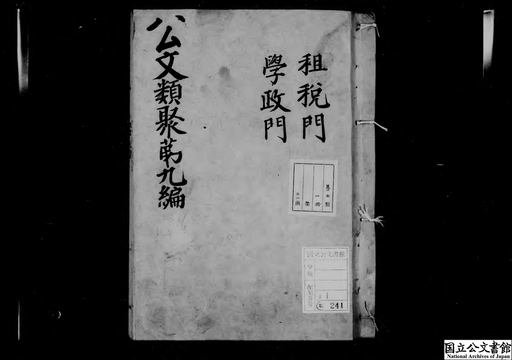 租税門
學政門
公文類聚第九編
241
国立公文書館
National Archives of Japan